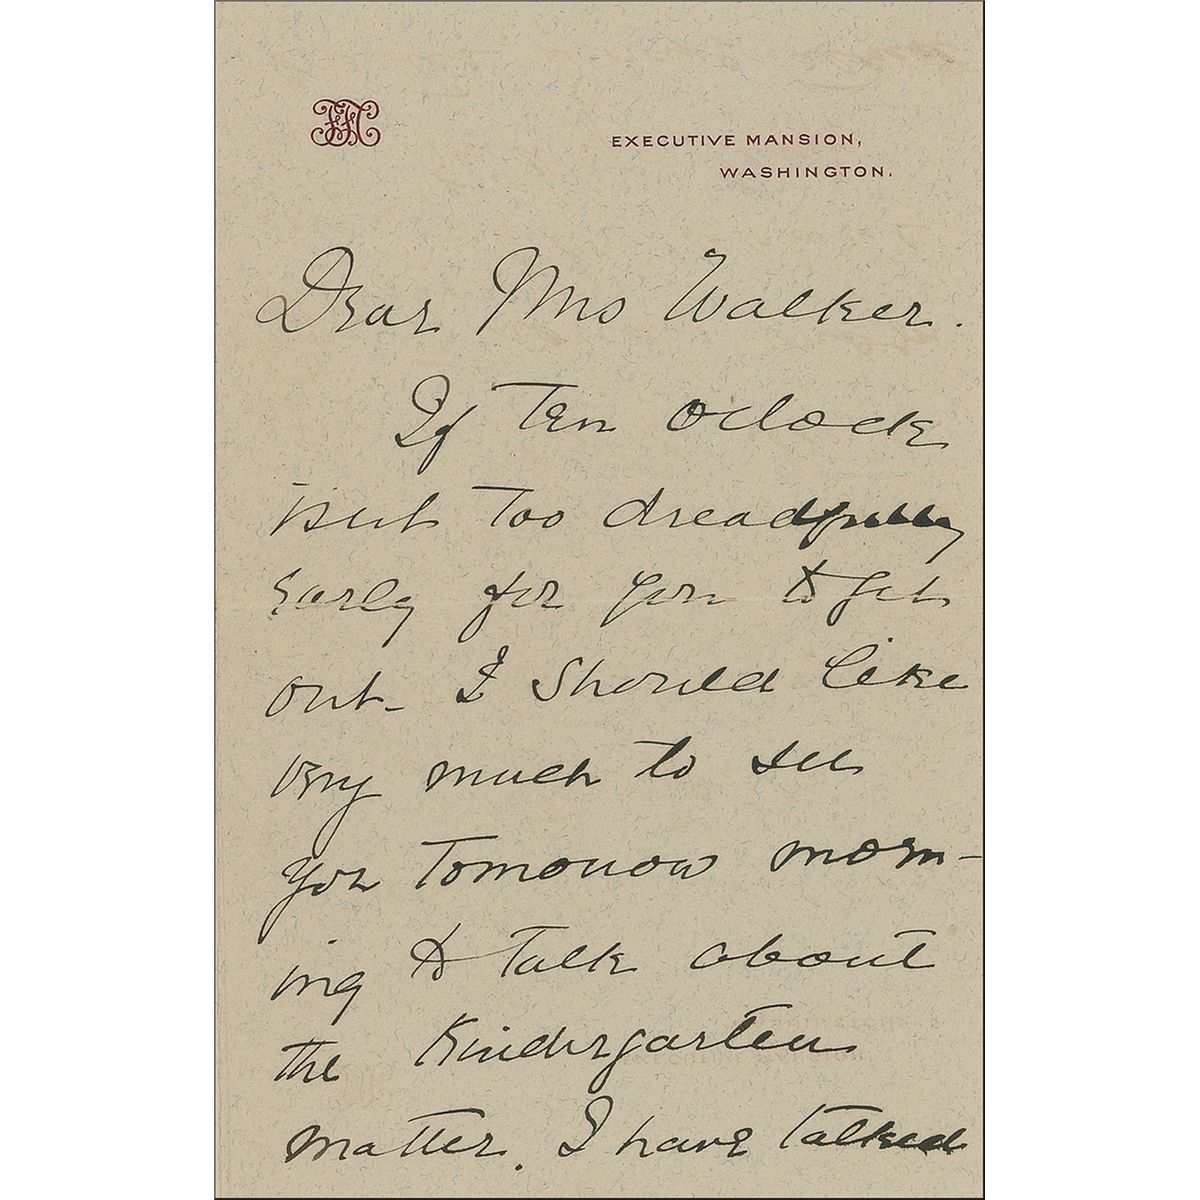 FFC
EXECUTIVE MANSION,
WASHINGTON.
Dear Mrs Walker.
If Ten oclock
isnt too dreadfully
early for you to get
out - I should like
very much to see
you tomorrow morn-
ing to talk about
the Kindergarten
matter. I have talked